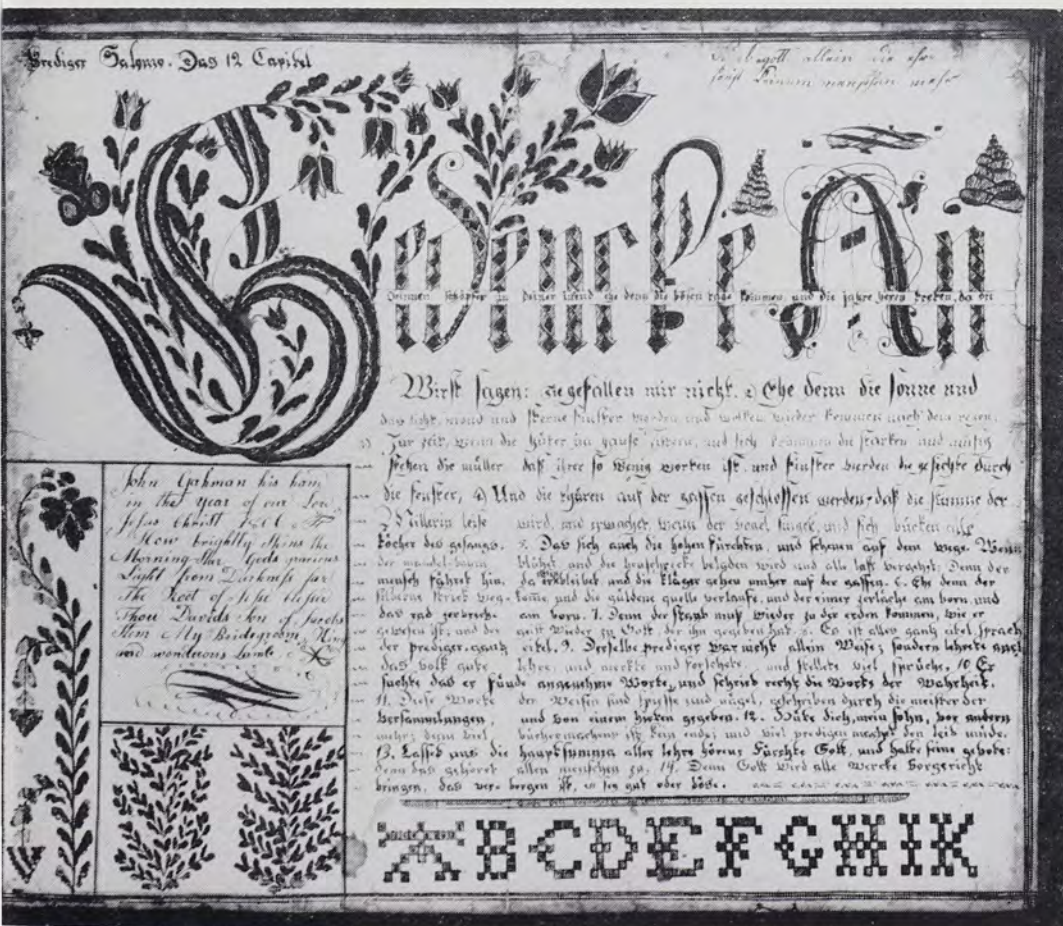 Prediger Salomo. Das 12 Capitel
gott allein die ehr
sonst keinem menschen mehr
Gedencke An
deinen schöpfer in deiner iugend ehe denn die bösen tage kommen, und die jahre herzu tretten, da du
Wirst sagen: sie gefallen mir nicht. 2) Ehe denn die sonne und
das licht, mond und sterne finster werden und wolken wieder kommen nach dem regen.
3) Zur zeit, wenn die hüter im hause zittern, und sich krümmen die starken und müsig
stehen die müller daß ihrer so wenig worden ist, und finster werden die gesichte durch
die fenster, 4) Und die thüren auf der gassen geschlossen werden, daß die stimme der
Müllerin leise wird, und erwachet, wenn der vogel singet, und sich bücken alle
töcher des gesangs. 5. Das sich auch die hohen fürchten, und scheuen auf dem wege. Wenn
der mandel-baum blühet und die heuschrecke beladen wird und alle lust vergehet; Denn der
mensch fähret hin, da er bleibet, und die kläger gehen umher auf der gassen. 6. Ehe denn der
silberne strick weg- komme, und die güldene quelle verlaufe, und der eimer zerlache am born, und
das rad zerbreche am born. 7. Denn der staub muß wieder zu der erden kommen, wie er
gewesen ist, und der geist wieder zu Gott, der ihn gegeben hat. 8. Es ist alles gantz eitel, sprach
der prediger, gantz eitel. 9. Derselbe prediger war nicht allein Weise; sondern lehrete auch
das volk gute lehre, und merkte und forschete, und stellete viel sprüche. 10 Er
suchte das er fünde angenehme Worte, und schrieb recht die Worte der Wahrheit.
11. Diese Worte der Weisen sind spiesse und nägel, geschrieben durch die meister der
versammlungen, und von einem hirten gegeben. 12. Hüte dich, mein sohn, vor andern
mehr; denn viel büchermachens ist kein ende; und viel predigen machet den leib müde.
13. Lasset uns die hauptsumma aller lehre hören: Fürchte Gott, und halte seine gebote:
denn das gehöret allen menschen zu, 14. Denn Gott wird alle wercke vorgericht
bringen, das ver- borgen ist, es sey gut oder böse.
John Gahman his han
in the year of our Lor
Jesus Christ
How brightly shins the
Morning-Star, Gods gracious
Light from Darkness far
The Root of Jesse blesse
Thou Davids Son of Jacobs
Stem My Bridegroom, King
and wonderous Lamb.
A B C D E F G H I K